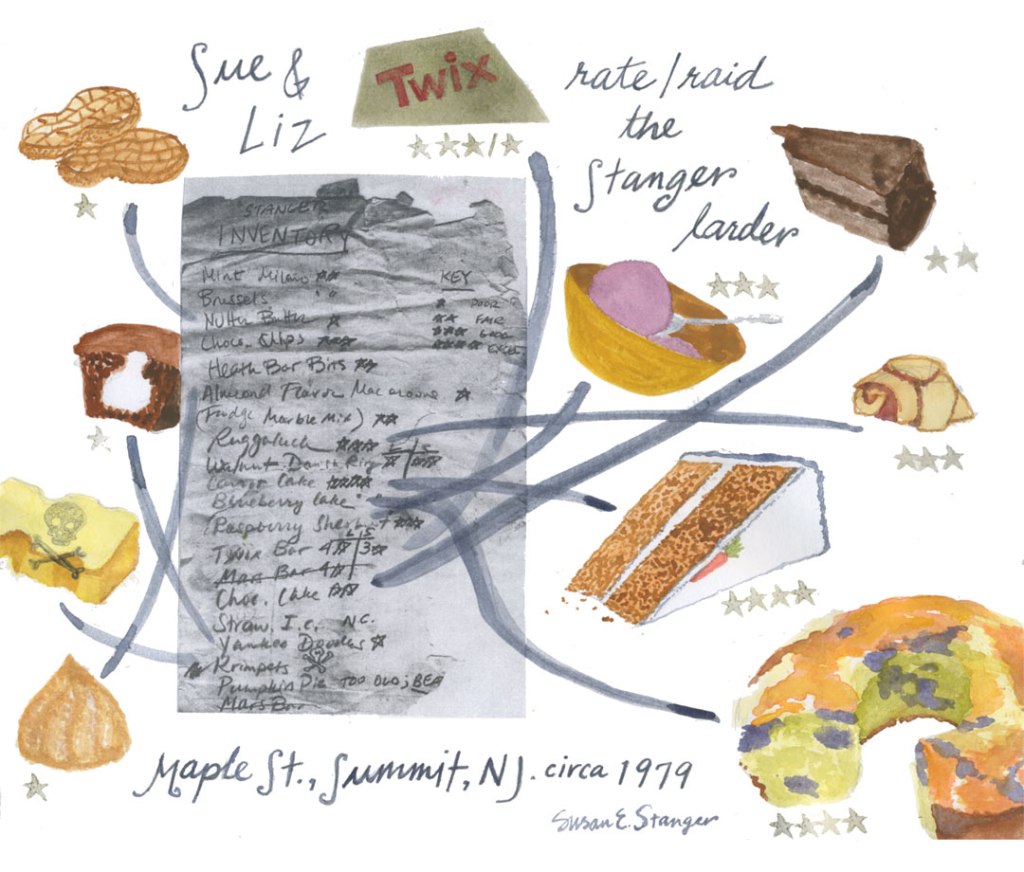 Sue &
Liz
Twix
rate/raid
the
Stanger
larder
STANGER
INVENTORY
KEY
Mint Milano
Brussels " "
POOR
Nutter Butter
FAIR
Choco. Chips
GOOD
EXCEL
Heath Bar Bits
Almond Flavor Macaroons
(Fudge Marble Mix)
Ruggaluch
L S
Walnut Danish Ring
Carrot Cake
Blueberry Cake " "
Raspberry Sherbet
L S
Twix Bar 4 3
Mars Bar 4
Choc. Cake
Straw. I.C. N.C.
Yankee Doodles
Krimpets
Pumpkin Pie TOO OLD;
Mars Bar
Maple St., Summit, NJ. circa 1979
Susan E. Stanger